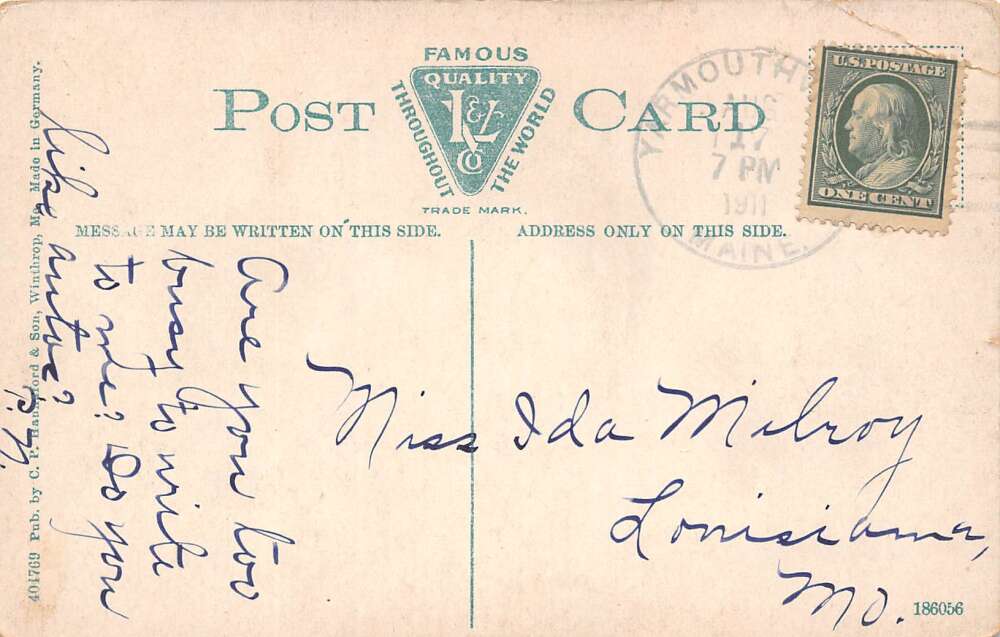 FAMOUS
QUALITY
THROUGHOUT THE WORLD
K&Z
Co
TRADE MARK.
POST CARD
YARMOUTH
AUG
17
7 PM
1911
MAINE.
U.S. POSTAGE
ONE CENT
MESSAGE MAY BE WRITTEN ON THIS SIDE.
ADDRESS ONLY ON THIS SIDE.
Are you too
busy to write
to me? Do you
like autos?
Miss Ida Milroy
Louisiana,
Mo.
404769 Pub. by C. P. & Son, Winthrop, Me. Made in Germany.
186056